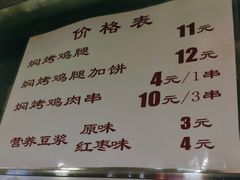 价格表
焖烤鸡腿 11元
焖烤鸡腿加饼 12元
焖烤鸡肉串 4元/1串
10元/3串
营养豆浆 原味 3元
红枣味 4元